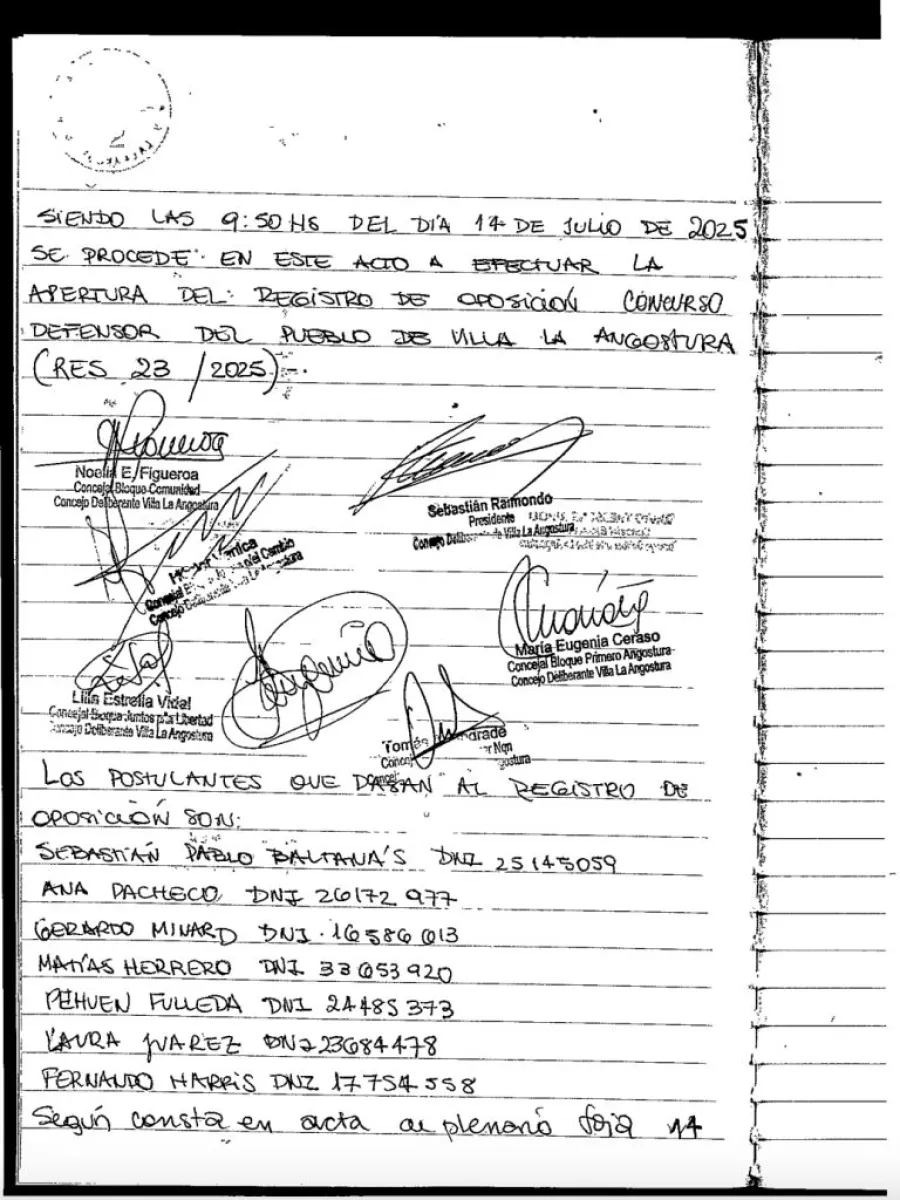 SIENDO LAS 9:50 HS DEL DÍA 14 DE JULIO DE 2025
SE PROCEDE EN ESTE ACTO A EFECTUAR LA
APERTURA DEL: REGISTRO DE OPOSICIÓN CONCURSO
DEFENSOR DEL PUEBLO DE VILLA LA ANGOSTURA
(RES 23 / 2025).
Figueroa
Noelia E. Figueroa
Concejal Bloque Comunidad
Concejo Deliberante Villa La Angostura
Sebastián Raimondo
Presidente
Concejo Deliberante de Villa La Angostura
Concejal del Cambio
Concejo Villa La Angostura
María Eugenia Ceraso
Concejal Bloque Primero Angostura
Concejo Deliberante Villa La Angostura
Lilia Estrella Vidal
Concejal Bloque Juntos p/la Libertad
Concejo Deliberante Villa La Angostura
Tomás
Nqn
LOS POSTULANTES QUE PASAN AL REGISTRO DE
OPOSICIÓN SON:
SEBASTIÁN PABLO BALTANA'S DNI 25145059
ANA PACHECO DNI 26172 977
GERARDO MINARD DNI. 16586 013
MATÍAS HERRERO DNI 33 053 920
PEHUEN FULLEDA DNI 24485 373
LAURA JUAREZ DNI 23684478
FERNANDO HARRIS DNI 17754 558
Según consta en acta de plenario foja 14